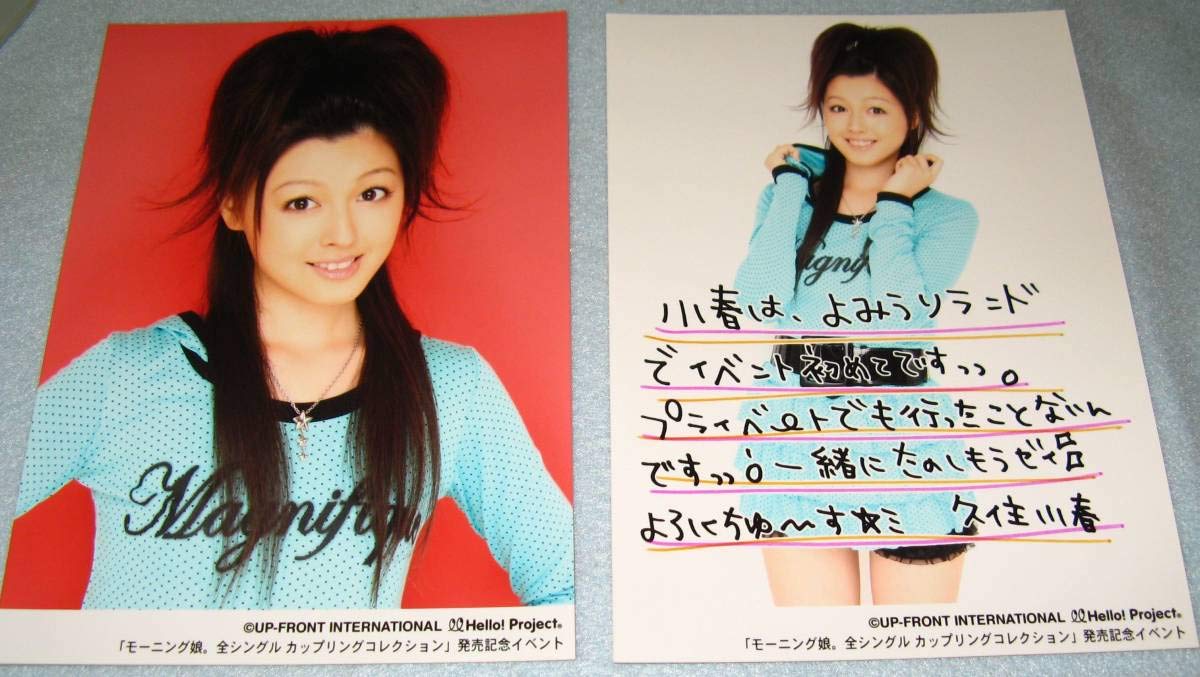 Magnifiqu
©UP-FRONT INTERNATIONAL Hello! Project®
「モーニング娘。全シングル カップリングコレクション」発売記念イベント
agnif
小春は、よみうりランド
でイベント初めてですっっ。
プライベートでも行ったことないん
ですっっ!一緒にたのしもうぜぃ
よろしくちゅ〜す☆ミ 久住小春
©UP-FRONT INTERNATIONAL Hello! Project®
「モーニング娘。全シングル カップリングコレクション」発売記念イベント